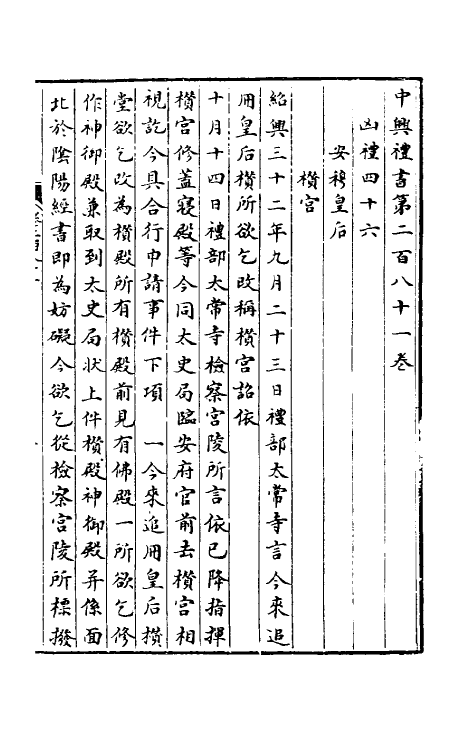 中興禮書第二百八十一卷
凶禮四十六
安穆皇后
欑宮
紹興三十二年九月二十三日禮部太常寺言今來追
冊皇后欑所欲乞改稱欑宮詔依
十月十四日禮部太常寺檢察宮陵所言依已降指揮
欑宮修蓋寢殿等今同太史局臨安府官前去欑宮相
視訖今具合行申請事件下項　一今來追冊皇后欑
堂欲乞改為欑殿所有欑殿前見有佛殿一所欲乞修
作神御殿兼取到太史局狀上件欑殿神御殿并係面
北於陰陽經書即為妨礙今欲乞從檢察宮陵所標撥